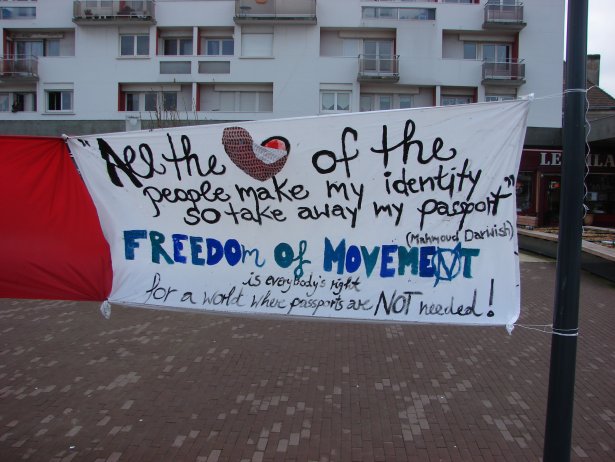 "All the ❤ of the
people make my identity
so take away my passport"
(Mahmoud Darwish)
FREEDOM OF MOVEMENT
is everybody's right
for a world where passports are NOT needed!